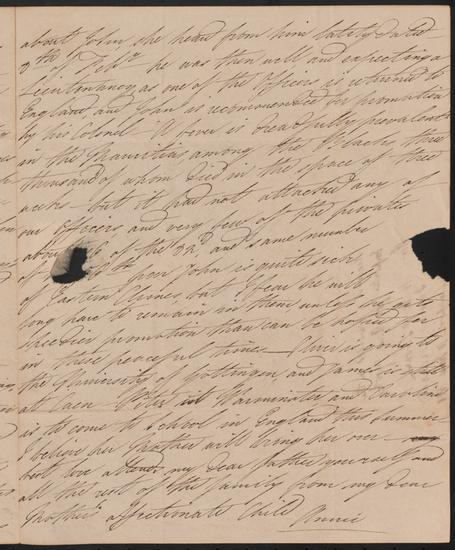 about John, she heard from him lately dated
8th of Feby. he was then well and expecting a
Lieutenancy as one of the Officers is returned to
England, and John is recommended for promotion
by his Colonel — A fever is dreadfully prevalent
in the Mauritius among the Blacks three
thousand of whom died in the space of three
weeks — but it had not attacked any of
our Officers, and very few of the privates
about 6 of the 82d. and same number
of th poor John is quite sick
of Eastern Climes, but I fear he will
long have to remain in them unless he gets
speedier promotion than can be hoped for
in these peaceful times — is going to
the University of Gottingen and James is still
at Caen Peter at Warminster and Caroline
is to come to School in England this summer
I believe her Mother will bring her over —
best love attends my dear father yourself and
all the rest of the family from my dear
Mother's affectionate Child Annie